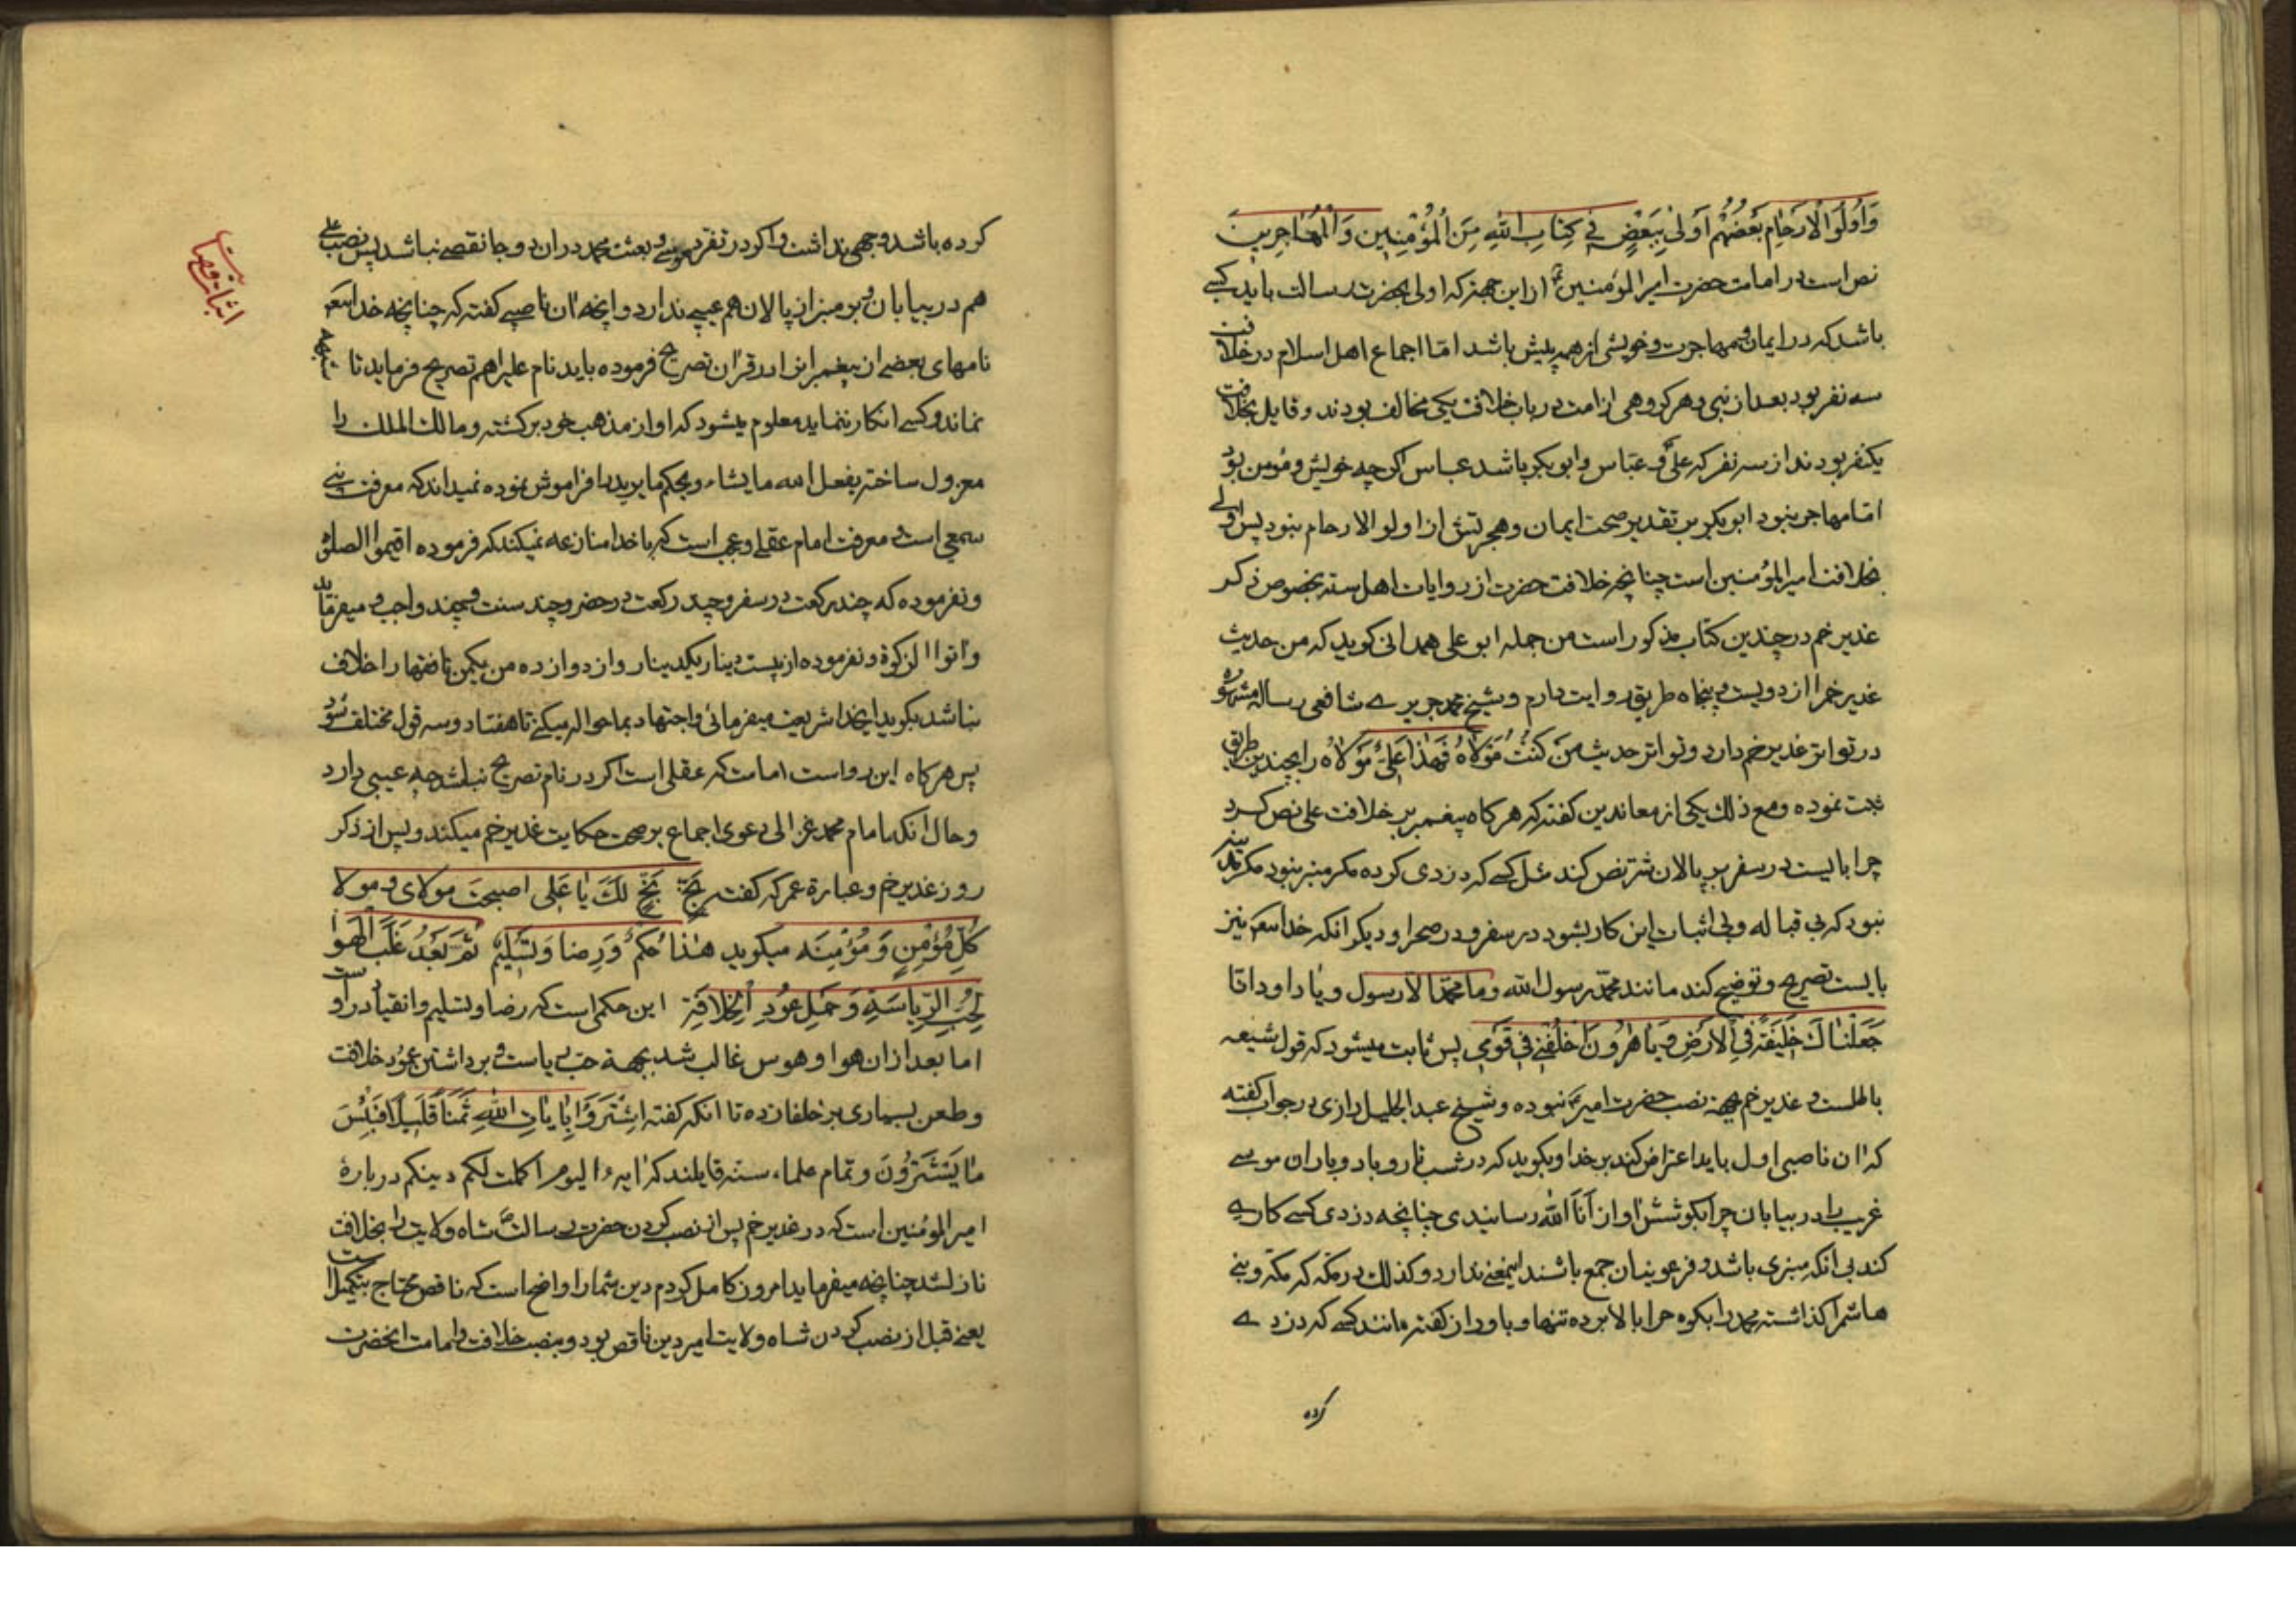 وَاُولُوا الْاَرْحَامِ بَعْضُهُمْ اَوْلىٰ بِبَعْضٍ فى كِتابِ اللهِ مِنَ الْمُؤْمِنِينَ وَالْمُهاجِرِينَ
نص است در امامت حضرت امیر المؤمنین از این جهة که اولی بحضرت رسالت باید کسی
باشد که در ایمان و مهاجرت و خویشی از همه پیش باشد اما اجماع اهل اسلام در خلافت
سه نفر بود بعد از نبی و هر کروهی از امت در باب خلافت یکی مخالف بودند و قایل بخلافت
یکنفر بودند از سه نفر که علی و عباس و ابو بکر باشد عباس اکر چه خویش و مؤمن بود
اما مهاجر نبود ابو بکر بر تقدیر صحت ایمان و هجرتش از اولو الارحام نبود پس اولی
بخلافت امیر المؤمنین است چنانچه خلافت حضرت از روایات اهل سنه بخصوص ذکر
غدیر خم در چندین کتاب مذکور است من جمله ابو علی همدانی کوید که من حدیث
غدیر خم را از دویست و پنجاه طریق روایت دارم و شیخ محمد جریری شافعی رساله مشهوره
در تواتر غدیر خم دارد و تواتر حدیث مَنْ كُنْتُ مَوْلاهُ فَهذا عَلِىٌّ مَوْلاهُ را بچندین طریق
ثبت نموده و مع ذلک یکی از معاندین کفته که هر کاه پیغمبر بر خلافت علی نص کرد
چرا بایست در سفر بر پالان شتر نص کند مثل کسی که دزدی کرده مکر منبر نبود مکر مدینه
نبود که بی قباله و بی اثبات این کار بشود در سفر و در صحرا و دیکر آنکه خدایتعم نیز
بایست تصریح و توضیح کند مانند محمد رسول الله وما محمد الا رسول و یا داود انا
جَعَلْناكَ خَليفَةً فِى الْاَرْضِ وَ يا هرُونَ اخْلُفْنى فى قَوْمى پس ثابت میشود که قول شیعه
باطلست و غدیر خم بجهة نصب حضرت امیر نبوده و شیخ عبد الجلیل رازی در جواب کفته
که آن ناصبی اول باید اعتراض کند بر خدا و بکوید که در شب تار و باد و باران موسی
غریب را در بیابان چرا بکوشش آواز اَنَا الله رسانیدی چنانچه دزدی کسی کاری
کند بی آنکه منبری باشد و فرعونیان جمع باشند اینمعنی ندارد و کذلک در مکه که مکه و بنی
هاشم را کذاشته محمد را بکوه حرا بالا برده تنها و باو راز کفته مانند کسی که دزدی
کرده
کرده باشد وجهی نداشت و اکر در تفرد موسی و بعثت محمد در آن دو جا نقصی نباشد پس نصب علی
هم در بیابان و بر منبر از پالان هم عیبی ندارد و آنچه آن ناصبی کفته که چنانچه خدایتعم
نامهای بعضی از پیغمبرانرا در قرآن تصریح فرموده باید نام علیرا هم تصریح فرماید تا شبهه
نماند و کسی انکار ننماید معلوم میشود که او از مذهب خود برکشته و مالک الملک را
معزول ساخته یفعل الله ما یشاء و یحکم ما یرید را فراموش نموده نمیداند که معرفت نبی
سمعی است و معرفت امام عقلی و عجب است که با خدا منازعه نمیکند که فرموده اقیموا الصلوة
و نفرموده که چند رکعت در سفر و چند رکعت در حضر و چند سنت و چند واجب و میفرماید
واتوا الزکوة و نفرموده از بیست دینار یکدینار و از دوازده من یکمن تا فقها را خلاف
نباشد بکوید ایخدا شریعت میفرمائی و اجتهاد بما حواله میکنی تا هفتاد و سه قول مختلف شود
پس هر کاه این رواست امامت که عقلی است اکر در نام تصریح نباشد چه عیبی دارد
و حال آنکه امام محمد غزالی دعوی اجماع بر صحت حکایت غدیر خم میکند و پس از ذکر
روز غدیر خم و عبارة عمر که کفته بَخٍّ بَخٍّ لَكَ يا عَلى اصبحتَ مولاى و مولا
كُلِّ مُؤْمِنٍ وَ مُؤْمِنَه میکوید هذا حُكْمٌ وَرِضا وَتَسْليمٌ ثُمَّ بَعْدُ غَلَبَ الْهَوا
لِحُبِّ الرِّياسَةِ وَ حَمْلِ عَوْدِ الْخِلافَةِ این حکمی است که رضا و تسلیم و انقیاد در اوست
اما بعد از آن هوا و هوس غالب شد بجهة حب ریاست و برداشتن عود خلافت
و طعن بسیاری بر خلفا زده تا آنکه کفته اشْتَرَوْا بِاياتِ اللهِ ثَمَناً قَليلاً فَبِئْسَ
ما يَشْتَرُونَ و تمام علماء سنه قایلند که آیه الیوم اکملت لکم دینکم در بارهٔ
امیر المؤمنین است که در غدیر خم پس از نصب کردن حضرت رسالت شاه ولایت را بخلافت
نازلشد چنانچه میفرماید امروز کامل کردم دین شما را و اضح است که ناقص محتاج بتکمیل است
یعنی قبل از نصب کردن شاه ولایت امر دین ناقص بود و بنصب خلافت و امامت آنحضرت
اثبات وصایت